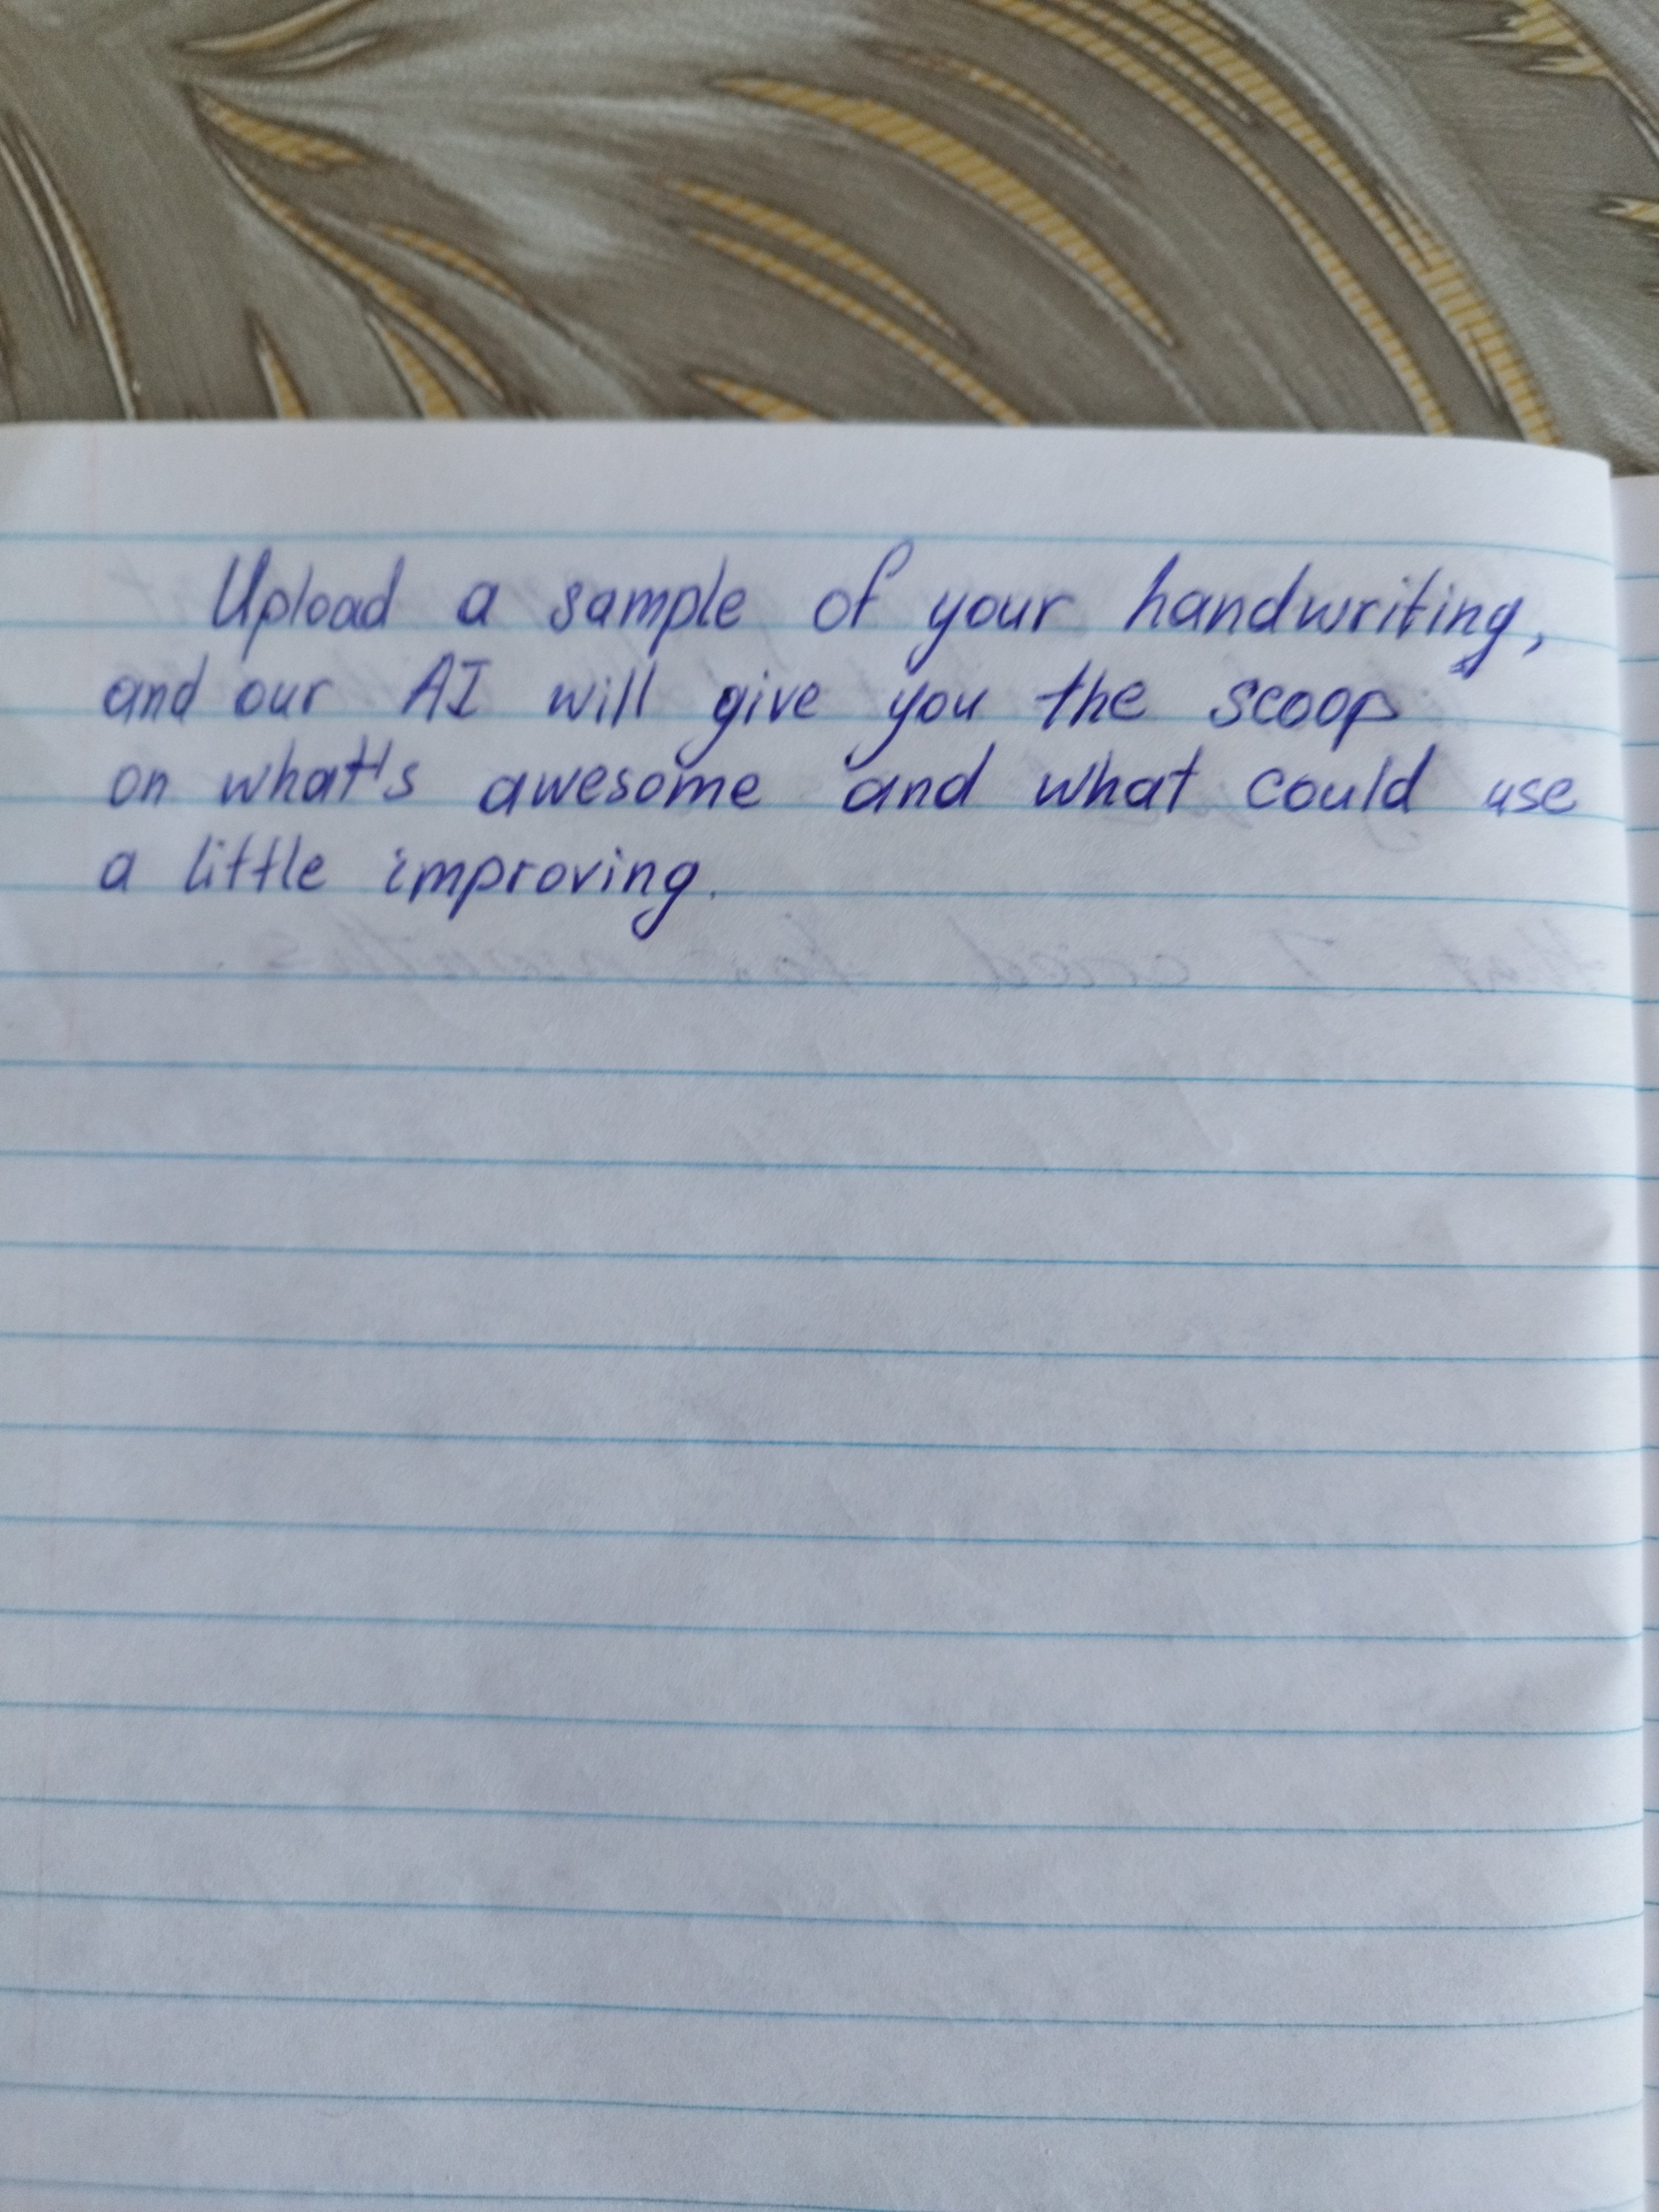 Upload a sample of your handwriting,
and our AI will give you the scoop
on what's awesome and what could use
a little improving.